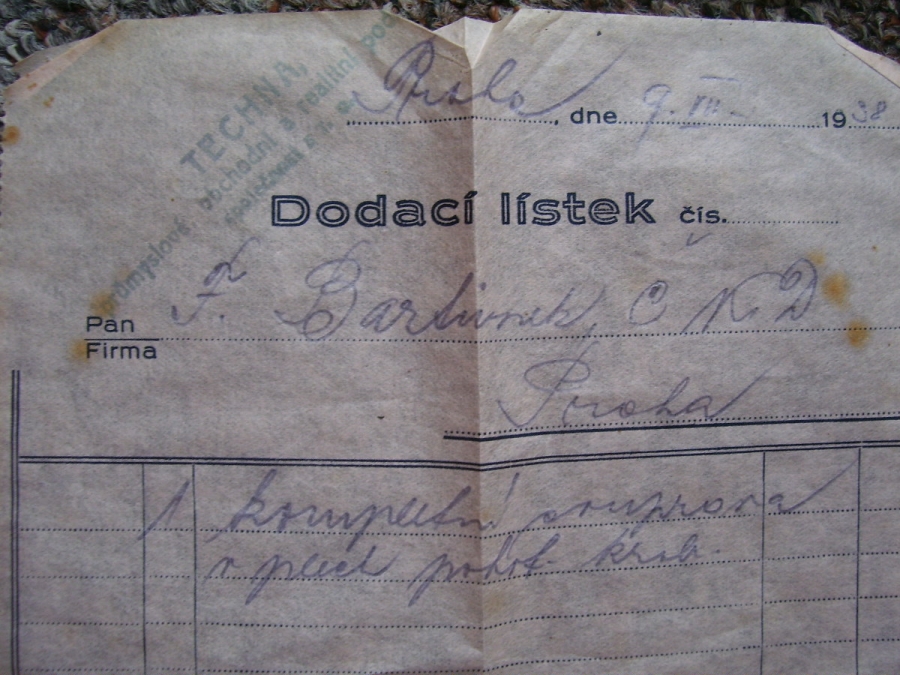 TECHNA,
průmyslová obchodní a realitní
společnost s r. o.
Praha, dne 9. VII. 1938
Dodací lístek čís.
Pan
Firma
F. Bartivnek, Č K D
Praha
1 kompletní souprava
v plech pohot. krab.